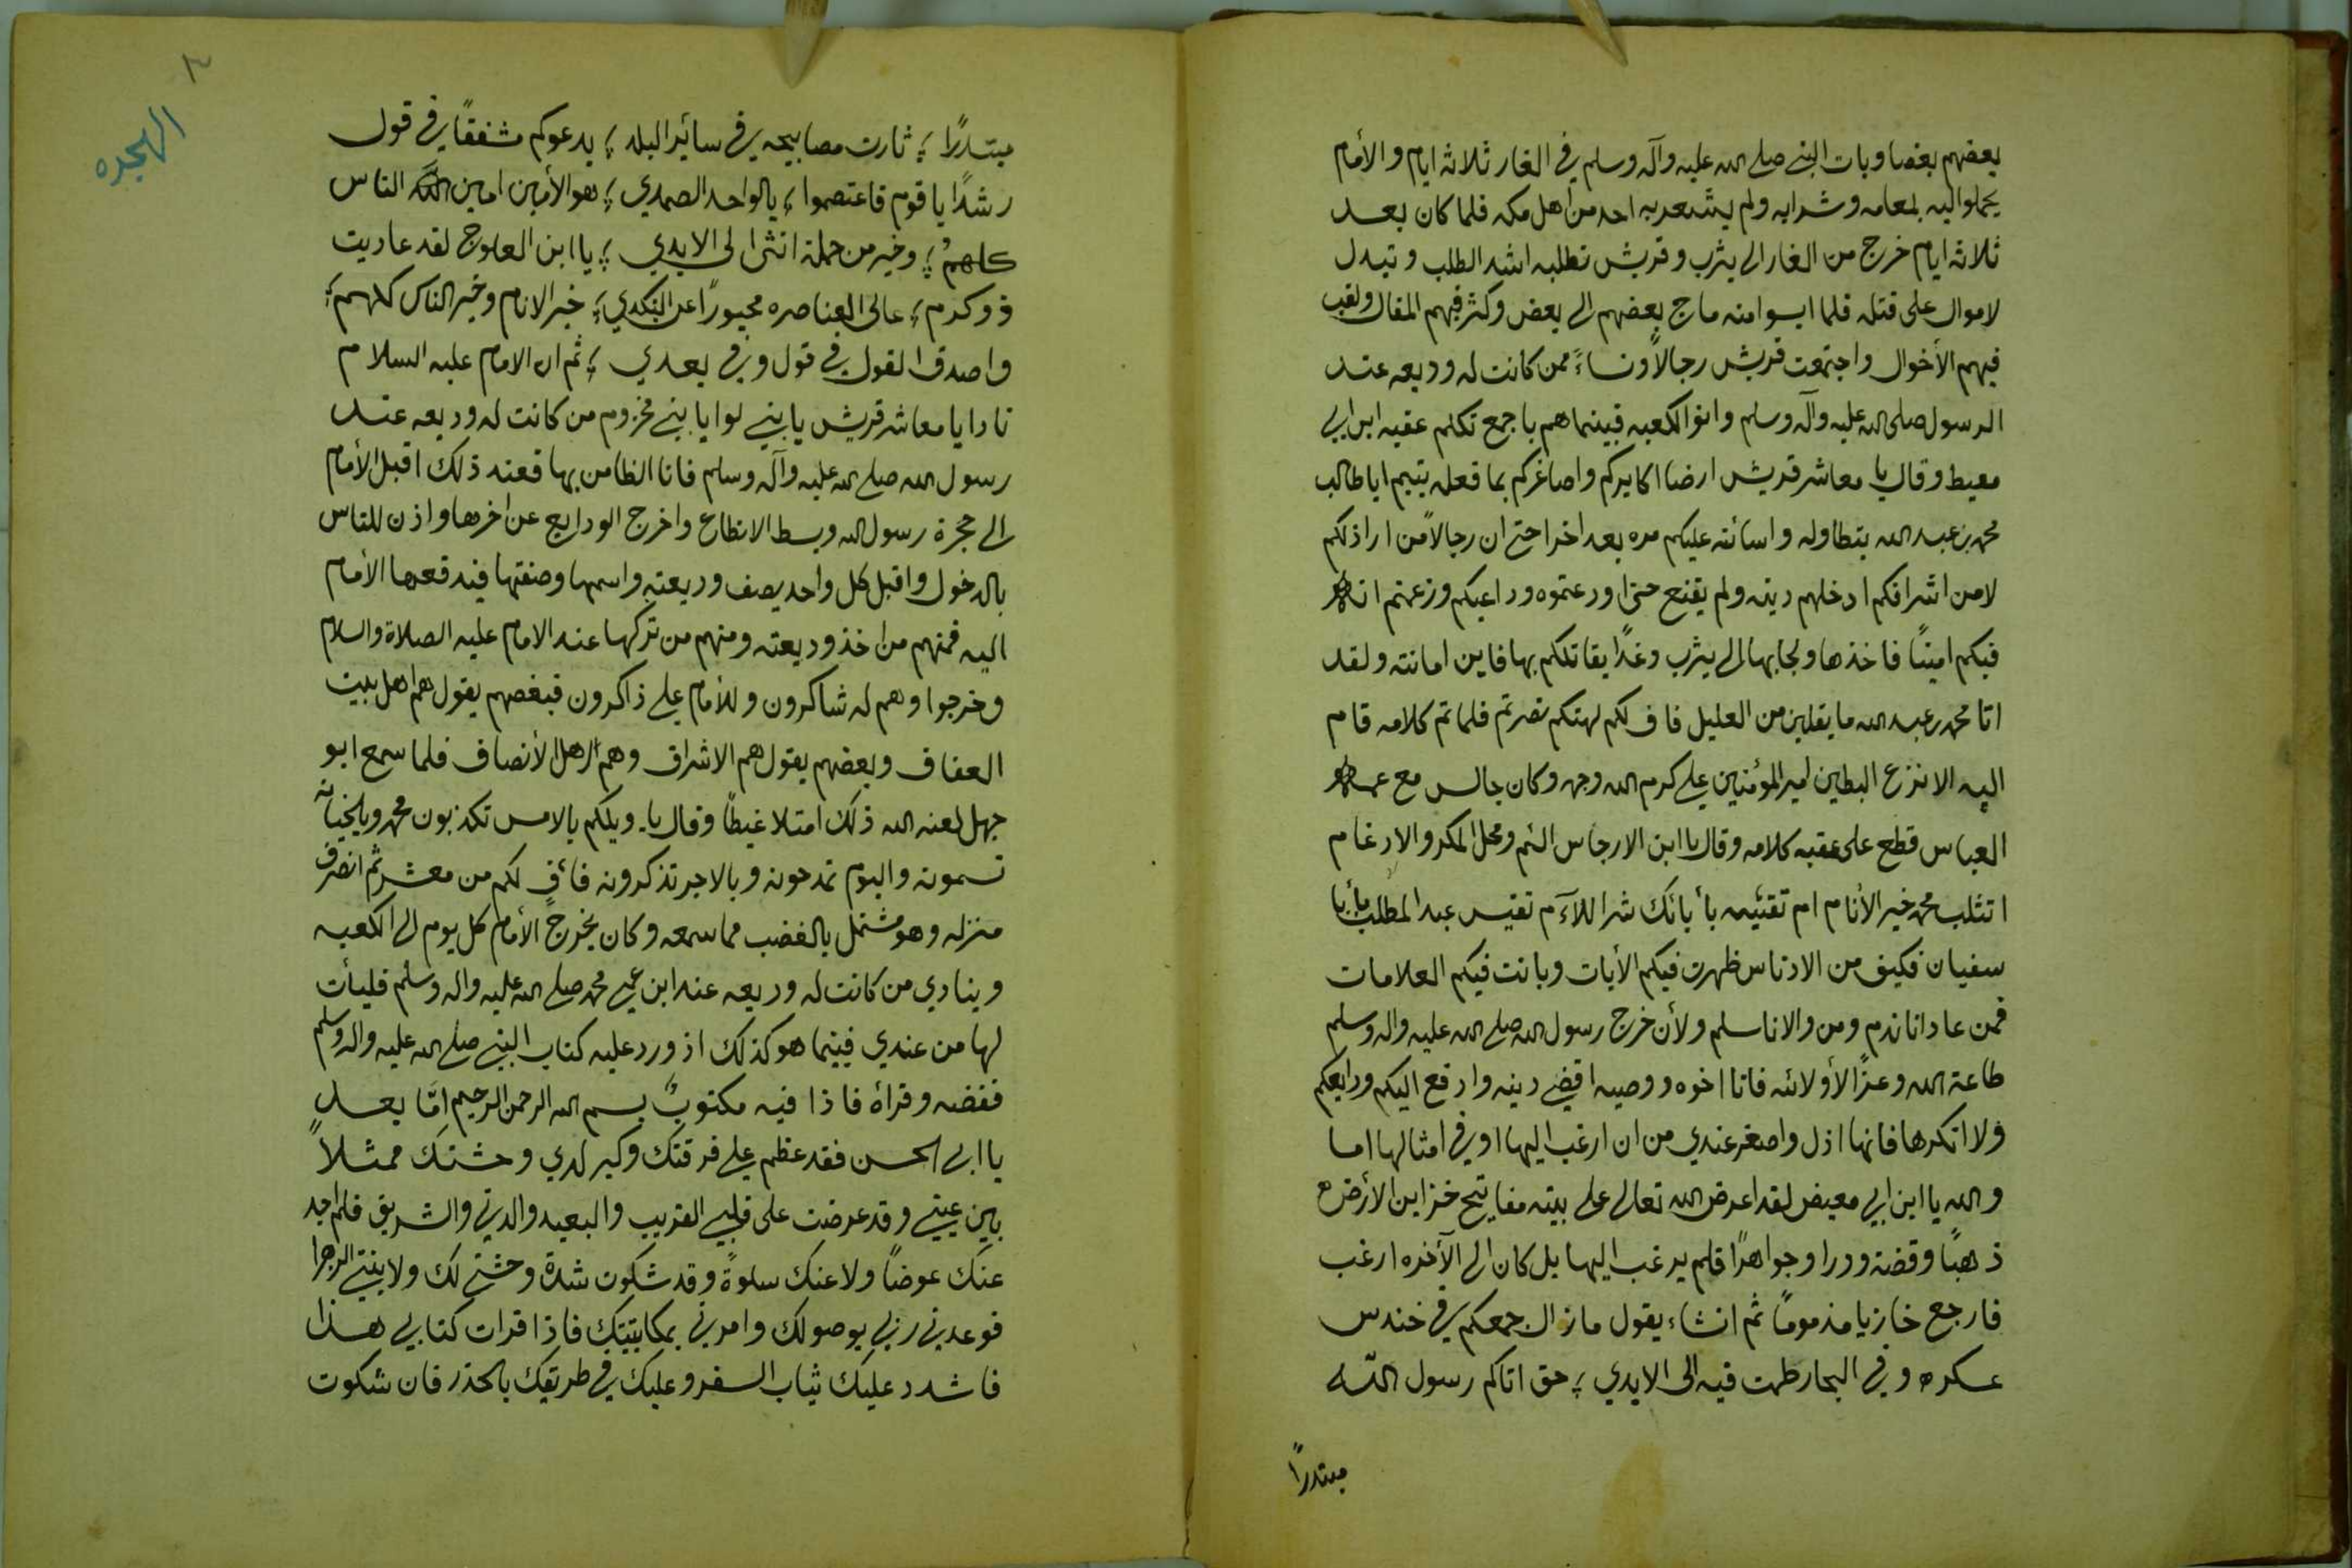 بعضهم بغضا وبات النبي صلى الله عليه وآله وسلم في الغار ثلاثه ايام والأمام
يحملوا اليه لمعامه وشرابه ولم يشعر به احد من اهل مكه فلما كان بعد
ثلاثه ايام خرج من الغار الى يثرب وقريش تطلبه اشد الطلب وتبدل
لاموال على قتله فلما ايسوا منه ماج بعضهم الى بعض وكثر فيهم المقال ولقب
فيهم الأخوال واجتمعت قريش رجالاً ونساءً ممن كانت له وديعه عند
الرسول صلى الله عليه وآله وسلم واتوا الكعبه فبينما هم باجمع تكلم عقبه ابن ابي
معيط وقال يا معاشر قريش ارضا اكابركم واصاغركم بما فعله يتيم ابا طالب
محمد بن عبد الله بتطاوله واسائته عليكم مره بعد اخرا حتى ان رجالاً من اراذلكم
لا من اشرافكم ادخلهم دينه ولم يقنع حتى اودعتموه وداعيكم وزعمتم انه
فيكم اميناً فاخذها ولجا بها الى يثرب وغداً يقاتلكم بها فاين امانته ولقد
اتا محمد بن عبد الله ما يقلين من العليل فاف لكم لهتكم نصرتم فلما تم كلامه قام
اليه الانزع البطين امير المؤمنين علي كرم الله وجهه وكان جالس مع عمه
العباس قطع على عقبه كلامه وقال يا ابن الارجاس الئم ومحل المكر والادغام
اتثلب محمد خير الأنام ام تقئيه بأبائك شر اللآم تقيس عبد المطلب بأبا
سفيان فكيف من الادناس ظهرت فيكم الأيات وبانت فيكم العلامات
فمن عادانا ندم ومن والانا سلم ولأن خرج رسول الله صلى الله عليه واله وسلم
طاعة الله وعزاً لأوليائه فانا اخوه ووصيه اقضي دينه وادفع اليكم ودايعكم
ولا انكرها فانها اذل واصغر عندي من ان ارغب اليها او في امثالها اما
والله يا ابن ابي معيض لقد اعرض الله تعالى على بيته مفاتيح خزاين الأرض
ذهباً وفضة ودرا وجواهراً فلم يرغب اليها بل كان الى الآخره ارغب
فارجع خازيا مذموماً ثم انشاء يقول مازال جمعكم في خندس
عسكره وفي البحار طمت فيه الى الايدي ؛ حق اتاكم رسول الله
مبتدراً
٣
الهجره
مبتدرًا ؛ ثارت مصابيحه في سائر البلد ؛ يدعوكم مشفقاً في قول
رشداً يا قوم فاعتصموا ؛ بالواحد الصمدي ؛ هو الأمين امين الله الناس
كلهمُ ؛ وخير من حملة انثى الى الايدي ؛ يا ابن العلوج لقد عاديت
ذو كرم ؛ عالى العناصره محبوراً عن النكدي ؛ خير الانام وخير الناس كلهم ؛
واصدق القول في قول وفي يعدي ؛ ثم ان الامام عليه السلام
نادا يا معاشر قريش يا بني لوا يا بني مخزوم من كانت له وديعه عند
رسول الله صلى الله عليه وآله وسلم فانا الظامن بها فعند ذلك اقبل الأمام
الى حجرة رسول الله وبسط الانطاع واخرج الودايع عن اخرها واذن للناس
بالدخول واقبل كل واحد يصف وديعته واسمها وصفتها فيدفعها الأمام
اليه فمنهم من اخذ وديعته ومنهم من تركها عند الامام عليه الصلاة والسلام
وخرجوا وهم له شاكرون وللأمام علي ذاكرون فبعضهم يقول هم اهل بيت
العفاف وبعضهم يقول هم الاشراق وهم اهل الأنصاف فلما سمع ابو
جهل لعنه الله ذلك امتلا غيطاً وقال يا ويلكم بالامس تكذبون محمد وبالخيانه
تسمونه واليوم تمدحونه وبالاجر تذكرونه فأفٍ لكم من معشر ثم انصرف
منزله وهو مشتمل بالغضب مما سمعه وكان يخرج الأمام كل يوم الى الكعبه
وينادي من كانت له وديعه عند ابن عمي محمد صلى الله عليه واله وسلم فليأت
لها من عندي فبينما هو كذلك اذ ورد عليه كتاب النبي صلى الله عليه واله وسلم
ففضه وقراهُ فاذا فيه مكتوبٌ بسم الله الرحمن الرحيم امّا بعد
يا ابي الحسن فقد عظم علي فرقتك وكبر لدي وحشتك ممثلاً
بين عيني وقد عرضت على قلبي القريب والبعيد والدني والشريق فلم اجد
عنك عوضاً ولا عنك سلوةً وقد شكوت شدة وحشتي لك ولا بنتي الزهرا
فوعدني ربي بوصولك وامرني بمكاتبتك فاذا قرات كتابي هذا
فاشدد عليك ثياب السفر وعليك في طريقك بالحذر فان شكوت